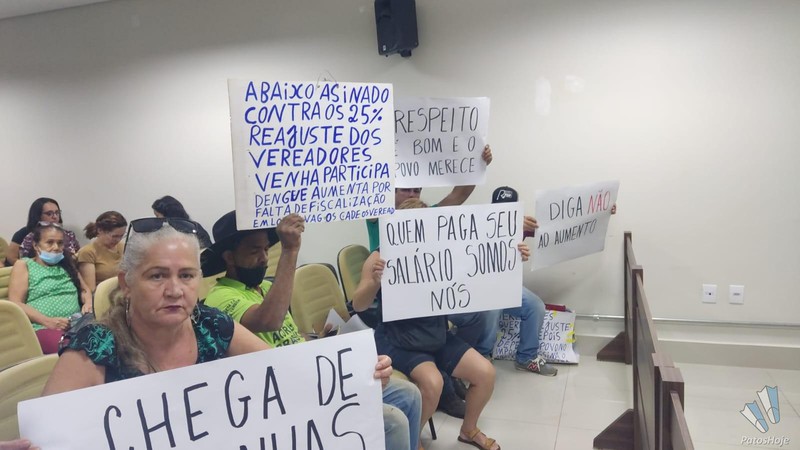 ABAIXO ASINADO
CONTRA OS 25%
REAJUSTE DOS
VEREADORES
VENHA PARTICIPA
DENGUE AUMENTA POR
FALTA DE FISCALIZAÇÃO
EM LOTES VAGOS CADE OS VEREAD
RESPEITO
É BOM E O
POVO MERECE
DIGA NÃO
AO AUMENTO
QUEM PAGA SEU
SALÁRIO SOMOS
NÓS
CHEGA DE
DEPOIS
PatosHoje